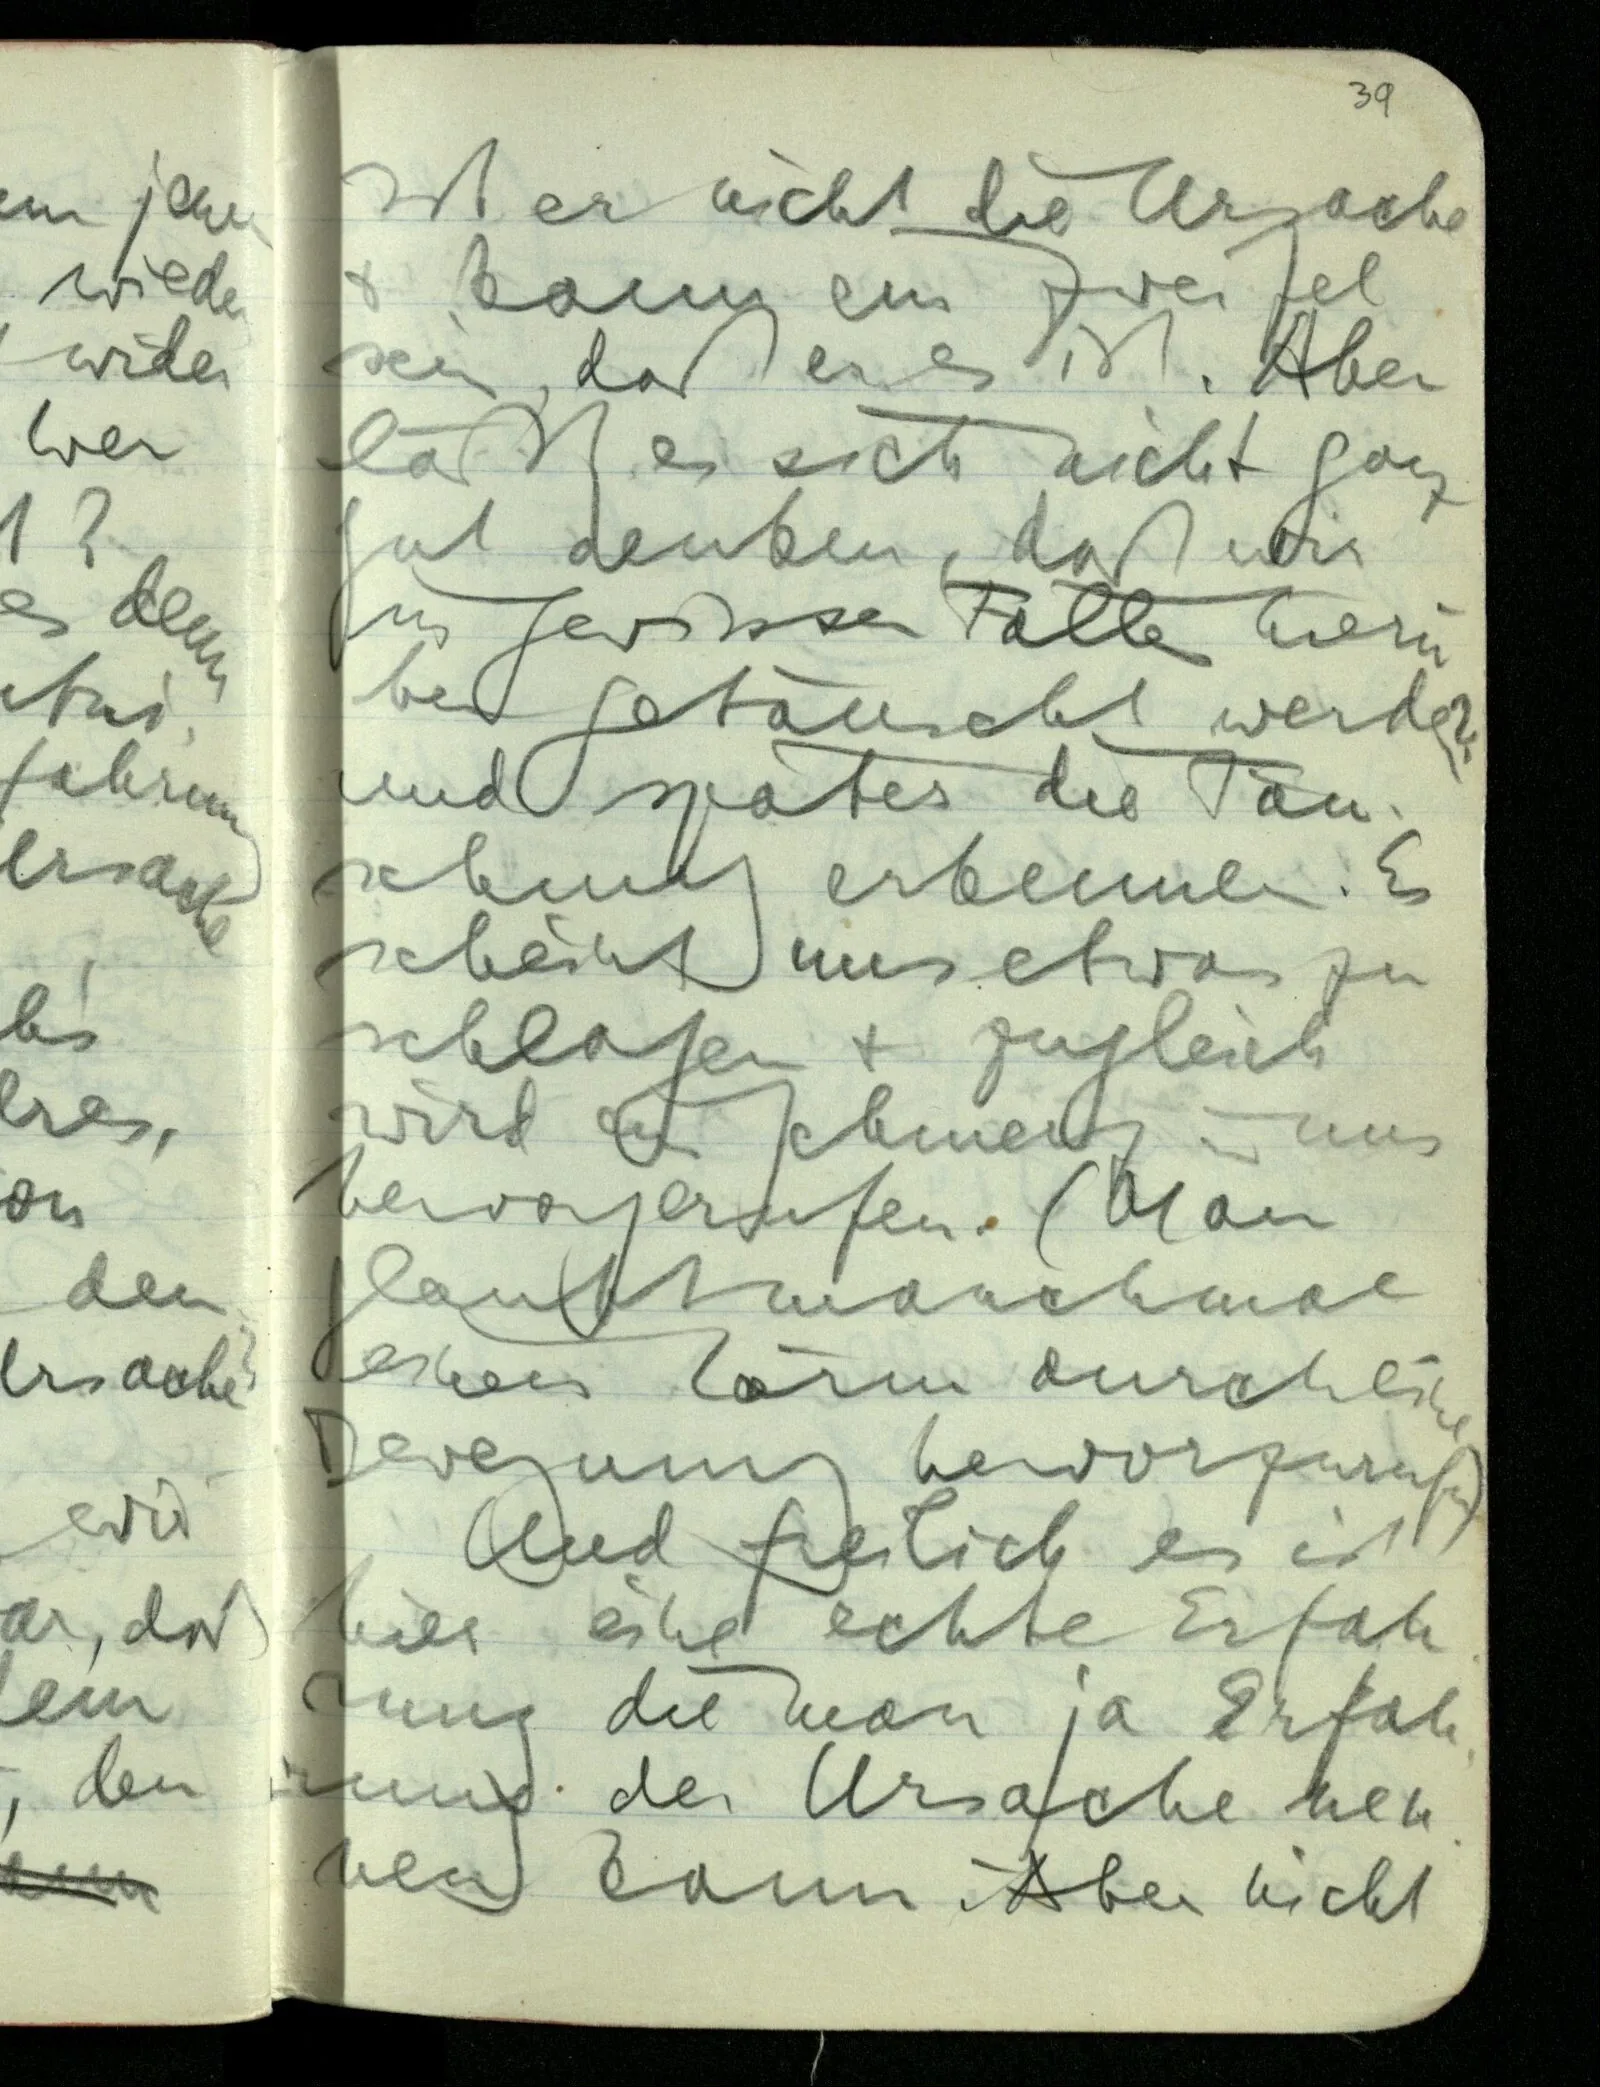 39
em jene
wieder
wider
wer
t?
es denn
fahrung
Ursache
bei
dres,
von
den
Ursache?
wir
ar, daß
dem
, den
ist er nicht die Ursache
+ kann ein Zweifel
sein, daß er es ist. Aber
läßt es sich nicht ganz
gut denken, daß wir
im gewissen Falle hierü
ber getäuscht werden
und später die Täu-
schung erkennen. Es
scheint uns etwas zu
schlagen + zugleich
wird ein Schmerz in uns
hervorgerufen. (Man
glaubt manchmal
einen Lärm durch eine
Bewegung hervorzurufen)
Und freilich es ist
hier eine echte Erfah
rung die man ja Erfah-
rung der Ursache nen-
nen kann. Aber nicht